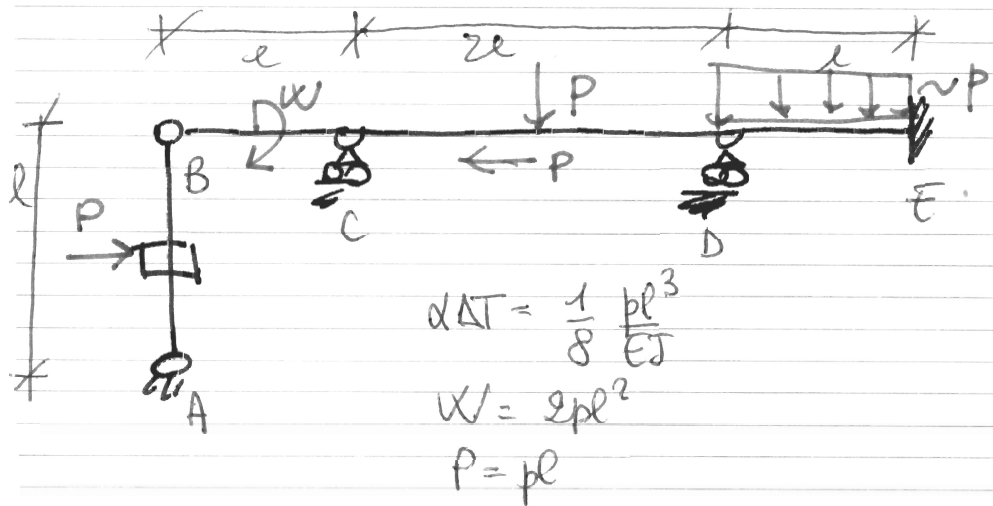 l 2l l
W P p
B P
l P C D E
A
αΔT = 1/8 pl³/EJ
W = 2pl²
P = pl